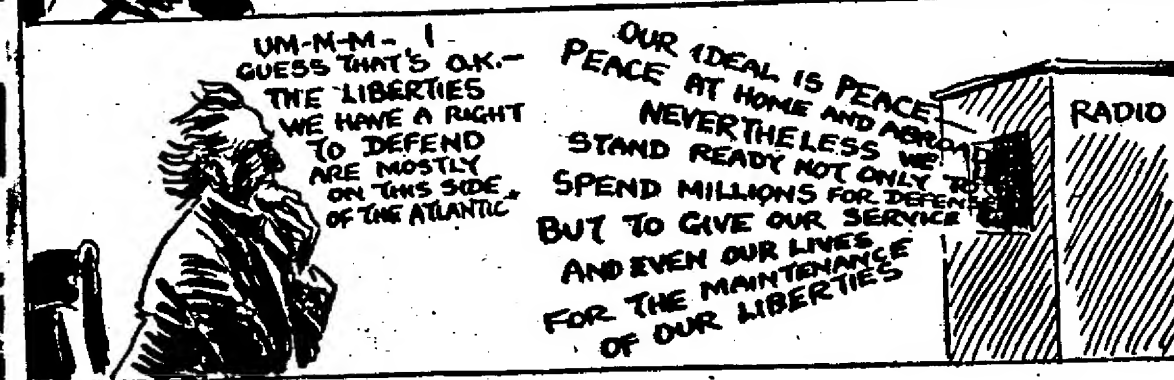 UM-M-M- I
GUESS THAT'S O.K.-
THE LIBERTIES
WE HAVE A RIGHT
TO DEFEND
ARE MOSTLY
ON THIS SIDE
OF THE ATLANTIC
OUR IDEAL IS PEACE-
PEACE AT HOME AND ABROAD
NEVERTHELESS WE
STAND READY NOT ONLY TO
SPEND MILLIONS FOR DEFENSE
BUT TO GIVE OUR SERVICE
AND EVEN OUR LIVES
FOR THE MAINTENANCE
OF OUR LIBERTIES
RADIO